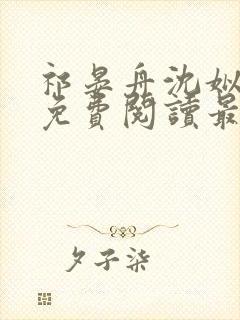 祁晏舟沈姒
免費閱讀最
夕子柒